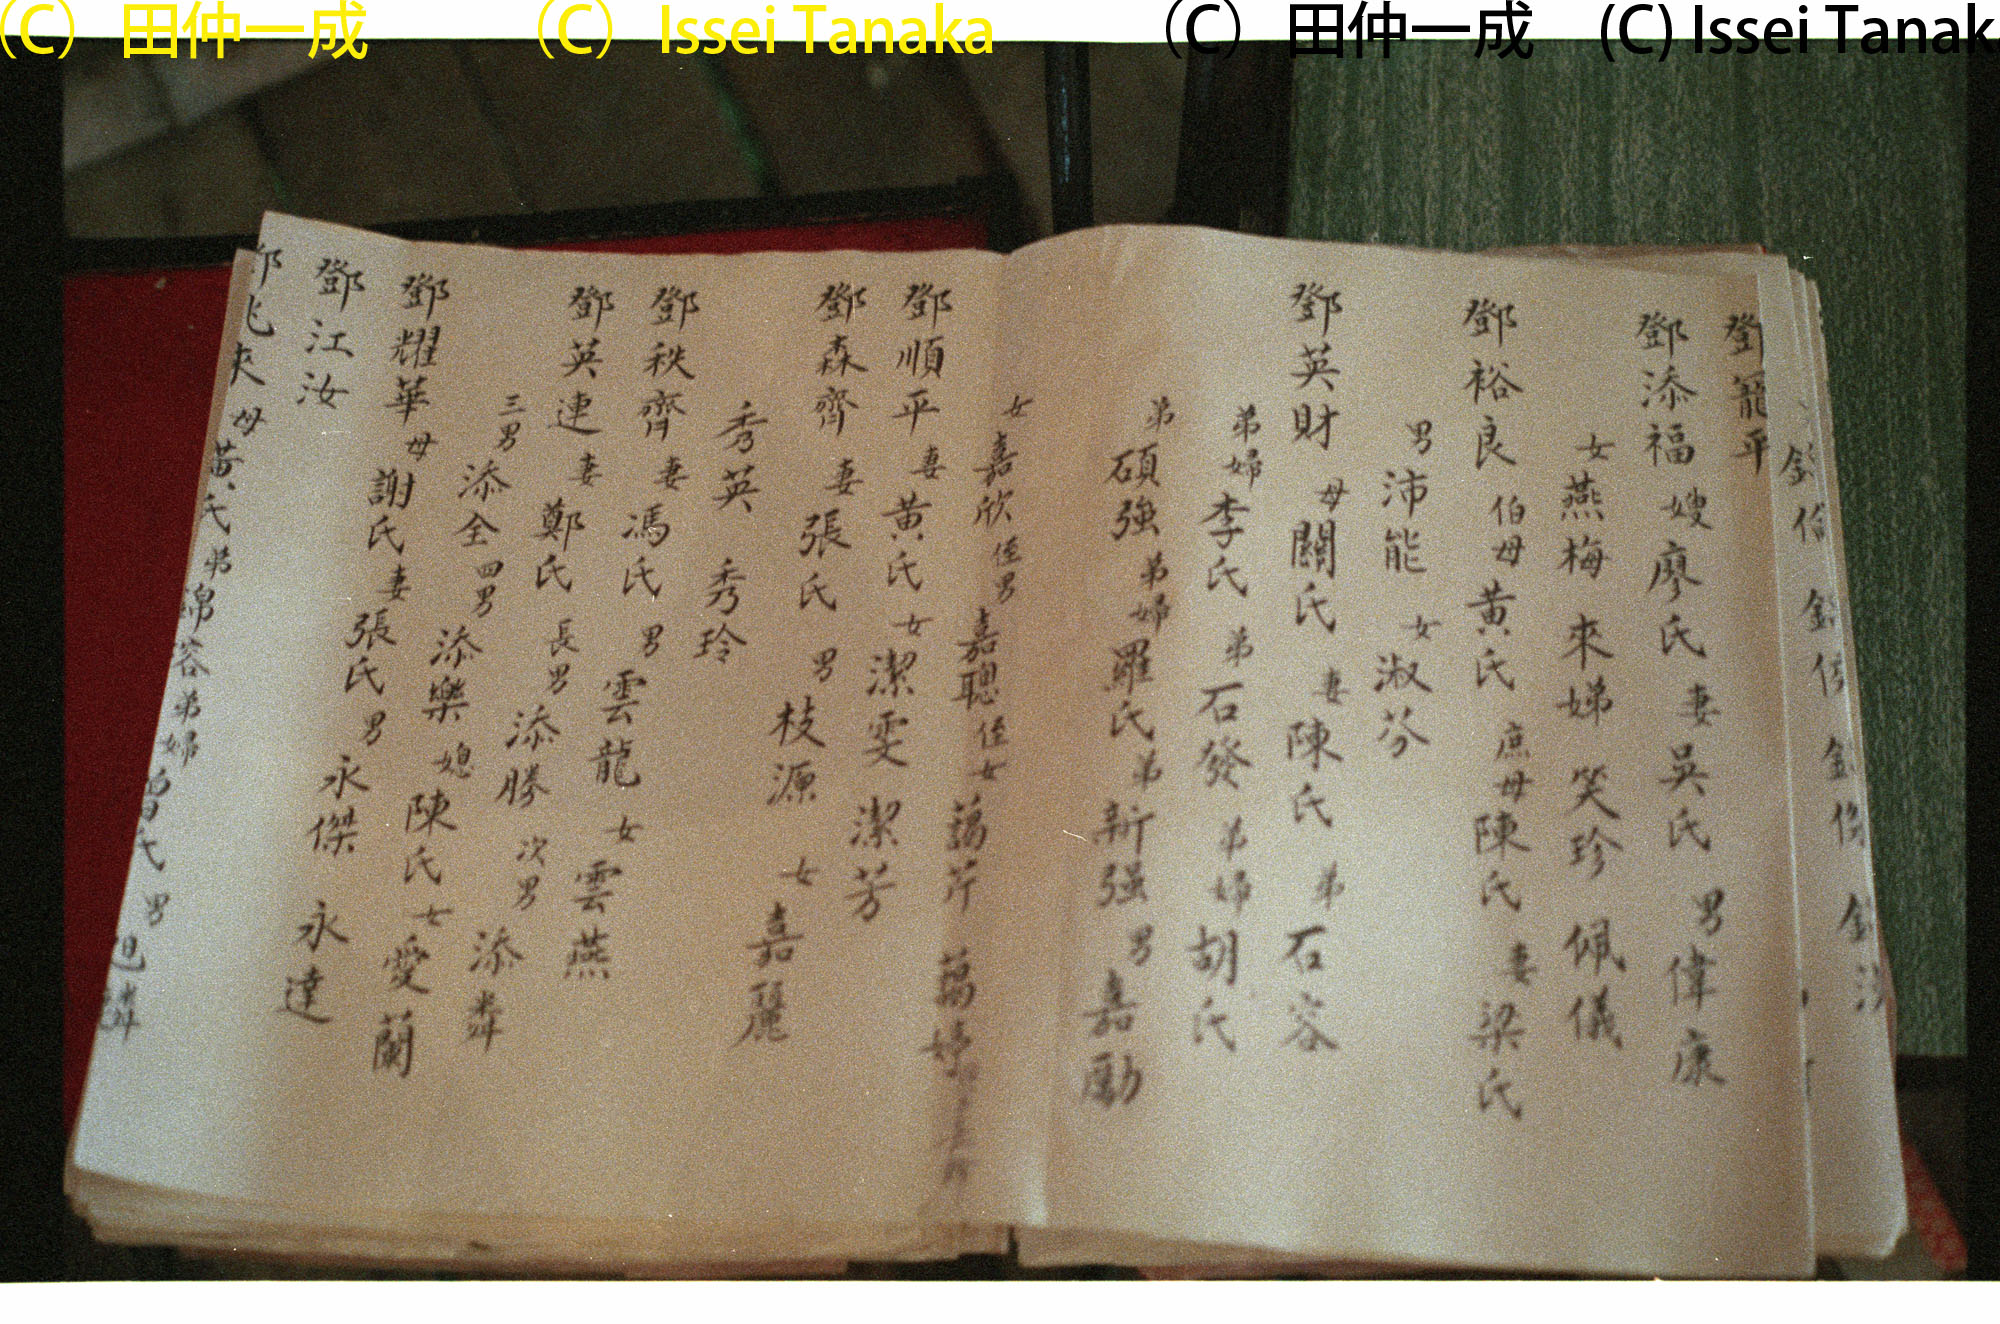 (C) 田仲一成 (C) Issei Tanaka (C) 田仲一成 (C) Issei Tanak
鄧龍平
鄧添福 嫂 廖氏 妻 吳氏 男 偉康
女 燕梅 來娣 笑珍 佩儀
鄧裕良 伯母 黃氏 庶母 陳氏 妻 梁氏
男 沛能 女 淑芬
鄧英財 母 關氏 妻 陳氏 弟 石容
弟婦 李氏 弟 石發 弟婦 胡氏
弟 碩強 弟婦 羅氏 弟 新强 男 嘉勵
女 嘉欣 侄男 嘉聰 侄女 藹芹 藹婷
鄧順平 妻 黃氏 女 潔雯 潔芳
鄧森齊 妻 張氏 男 枝源 女 嘉麗
秀英 秀玲
鄧秩齊 妻 馮氏 男 雲龍 女 雲燕
鄧英連 妻 鄭氏 長男 添勝 次男 添粦
三男 添全 四男 添樂 媳 陳氏 女 愛蘭
鄧耀華 母 謝氏 妻 張氏 男 永傑 永達
鄧江汝
母 黃氏 弟 錦容 弟婦 曾氏 男